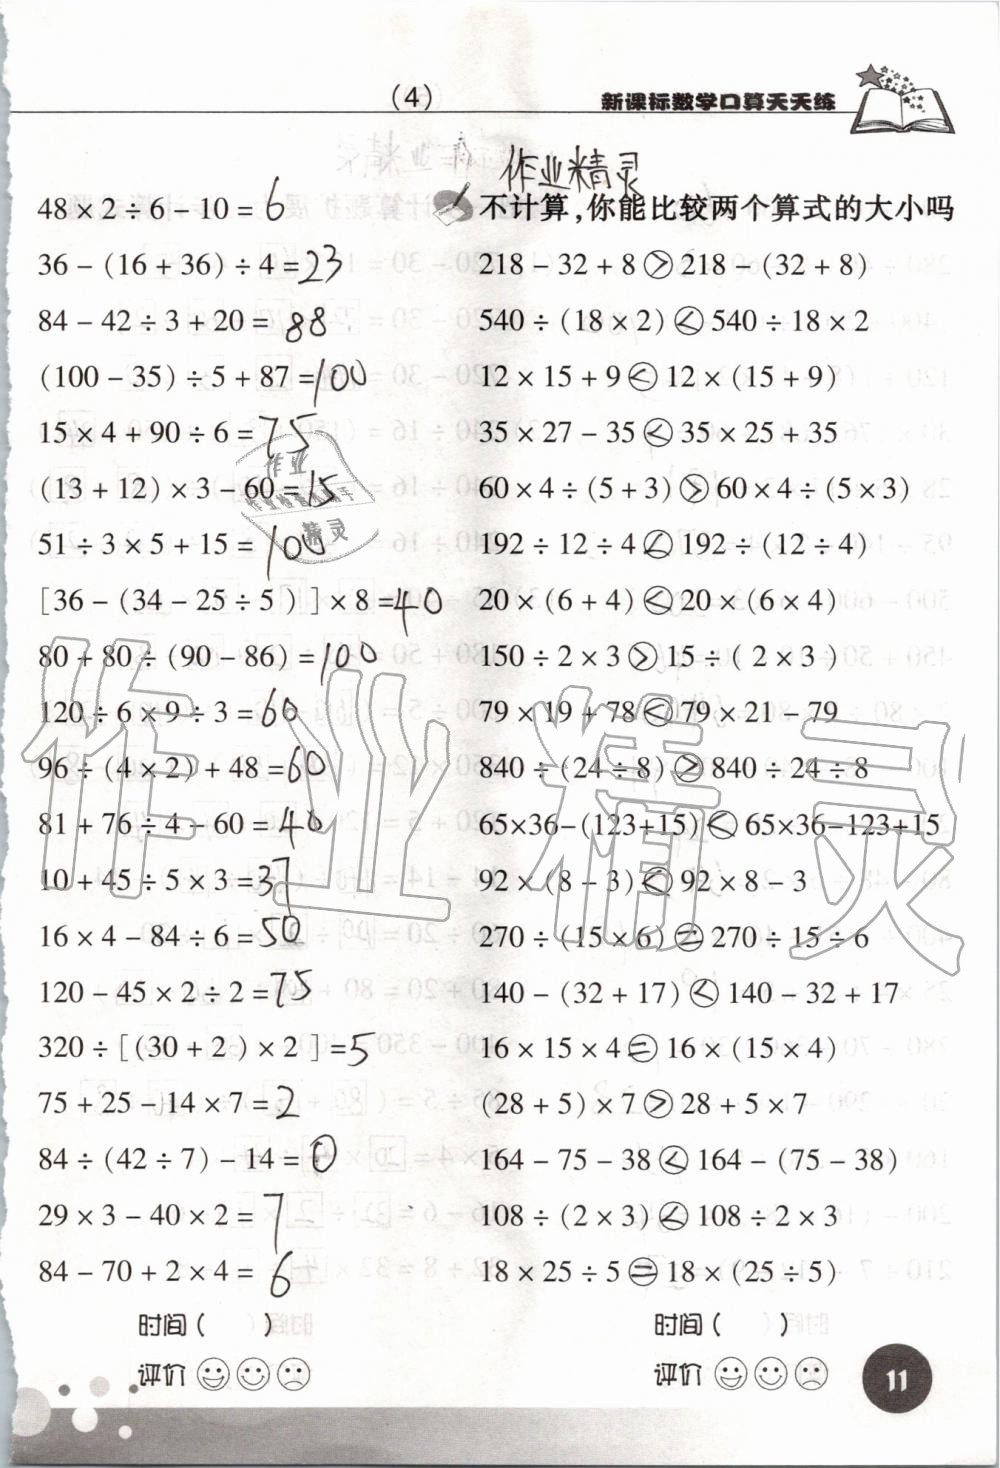 (4)
新课标数学口算天天练
作业精灵
48×2÷6-10=6
36-(16+36)÷4=23
84-42÷3+20=88
(100-35)÷5+87=100
15×4+90÷6=75
(13+12)×3-60=15
51÷3×5+15=100
[36-(34-25÷5)]×8=40
80+80÷(90-86)=100
120÷6×9÷3=60
96÷(4×2)+48=60
81+76÷4-60=40
10+45÷5×3=37
16×4-84÷6=50
120-45×2÷2=75
320÷[(30+2)×2]=5
75+25-14×7=2
84÷(42÷7)-14=0
29×3-40×2=7
84-70+2×4=6
时间( )
评价
不计算,你能比较两个算式的大小吗
218-32+8>218-(32+8)
540÷(18×2)<540÷18×2
12×15+9<12×(15+9)
35×27-35<35×25+35
60×4÷(5+3)>60×4÷(5×3)
192÷12÷4<192÷(12÷4)
20×(6+4)<20×(6×4)
150÷2×3>15÷(2×3)
79×19+78<79×21-79
840÷(24÷8)>840÷24÷8
65×36-(123+15)<65×36-123+15
92×(8-3)<92×8-3
270÷(15×6)=270÷15÷6
140-(32+17)<140-32+17
16×15×4=16×(15×4)
(28+5)×7>28+5×7
164-75-38<164-(75-38)
108÷(2×3)<108÷2×3
18×25÷5=18×(25÷5)
时间( )
评价
11
作业
精灵
作业精灵